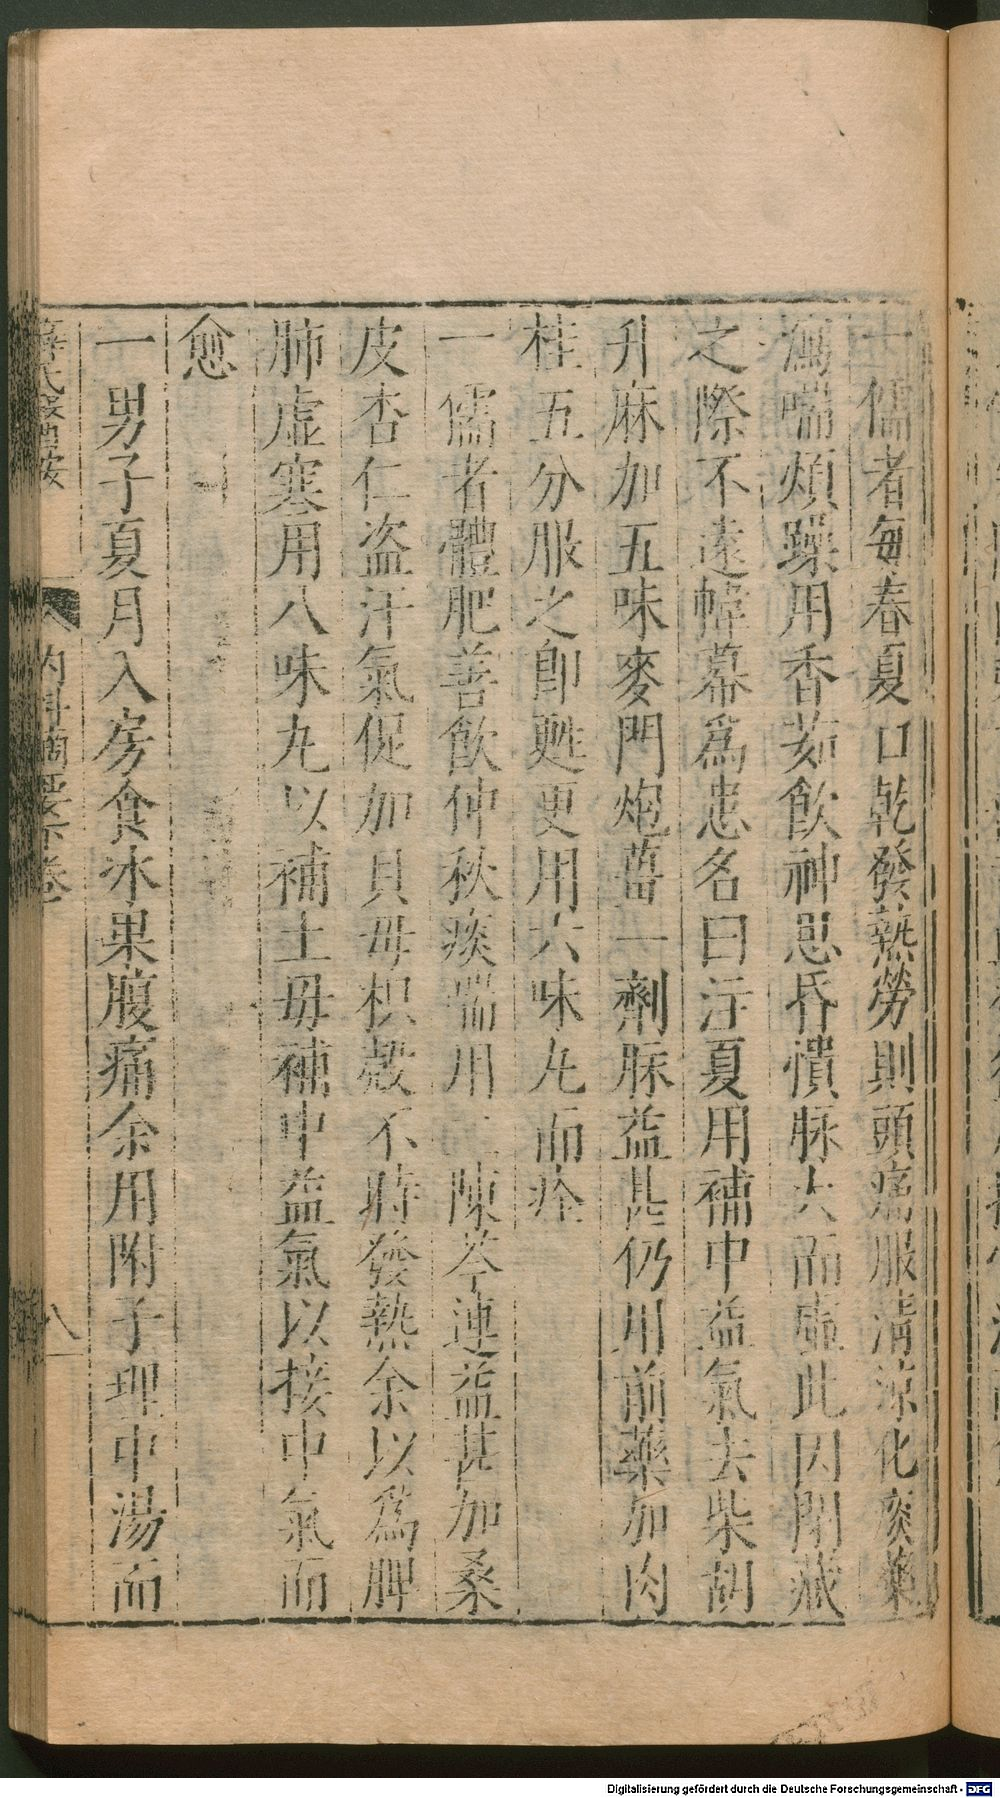 一儒者每春夏口乾發熱勞則頭痛服清涼化痰藥
瀉喘煩躁用香茹飲神思昏憒脉大而虛此因閉藏
之際不遠幃幕爲患名曰注夏用補中益氣去柴胡
升麻加五味麥門炮薑一劑脉益甚仍用前藥加肉
桂五分服之卽甦更用六味丸而痊
一儒者體肥善飲仲秋痰喘用二陳芩連益甚加桑
皮杏仁盗汗氣促加貝母枳殼不時發熱余以爲脾
肺虛寒用八味丸以補土母補中益氣以接中氣而
愈
一男子夏月入房食冰果腹痛余用附子理中湯而
薛氏醫按
內科摘要下卷
八
Digitalisierung gefördert durch die Deutsche Forschungsgemeinschaft - DFG